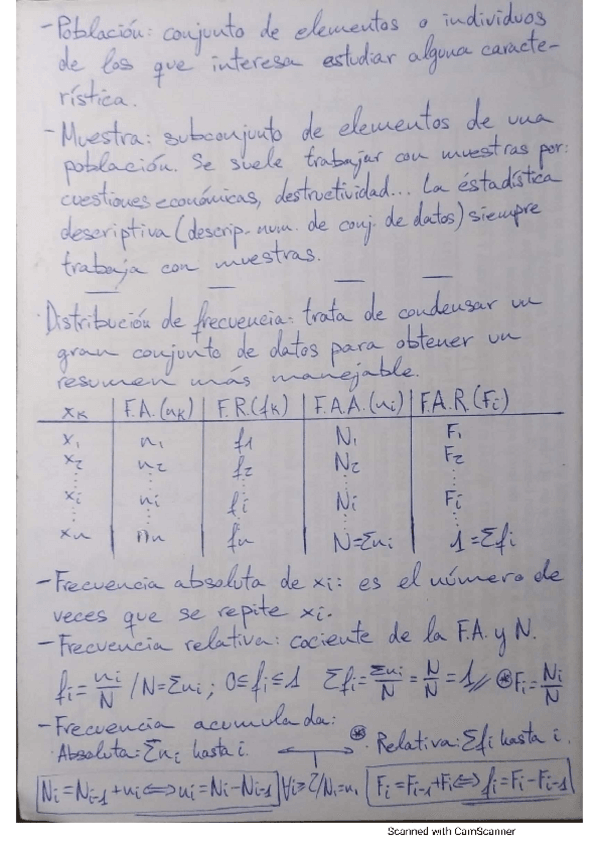 - Población: conjunto de elementos o individuos
de los que interesa estudiar alguna caracte-
rística.
- Muestra: subconjunto de elementos de una
población. Se suele trabajar con muestras por:
cuestiones económicas, destructividad... La éstadística
descriptiva (descrip. num. de conj. de datos) siempre
trabaja con muestras.
· Distribución de frecuencia: trata de condensar un
gran conjunto de datos para obtener un
resumen más manejable.
xk | F.A.(nk) | F.R.(fk) | F.A.A.(ni) | F.A.R.(Fi)
x1 | n1 | f1 | N1 | F1
x2 | n2 | f2 | N2 | F2
xi | ni | fi | Ni | Fi
xn | nn | fn | N=Σni | 1=Σfi
- Frecuencia absoluta de xi: es el número de
veces que se repite xi.
- Frecuencia relativa: cociente de la F.A. y N.
fi = ni/N / N=Σni; 0≤fi≤1 Σfi = Σni/N = N/N = 1// ⊛Fi = Ni/N
- Frecuencia acumulada:
· Absoluta: Σni hasta i. ⊛ · Relativa: Σfi hasta i.
Ni = Ni-1 + ni ⟺ ni = Ni - Ni-1 ∀i≥2/N1=n1 Fi = Fi-1 + Fi ⟺ fi = Fi - Fi-1
Scanned with CamScanner